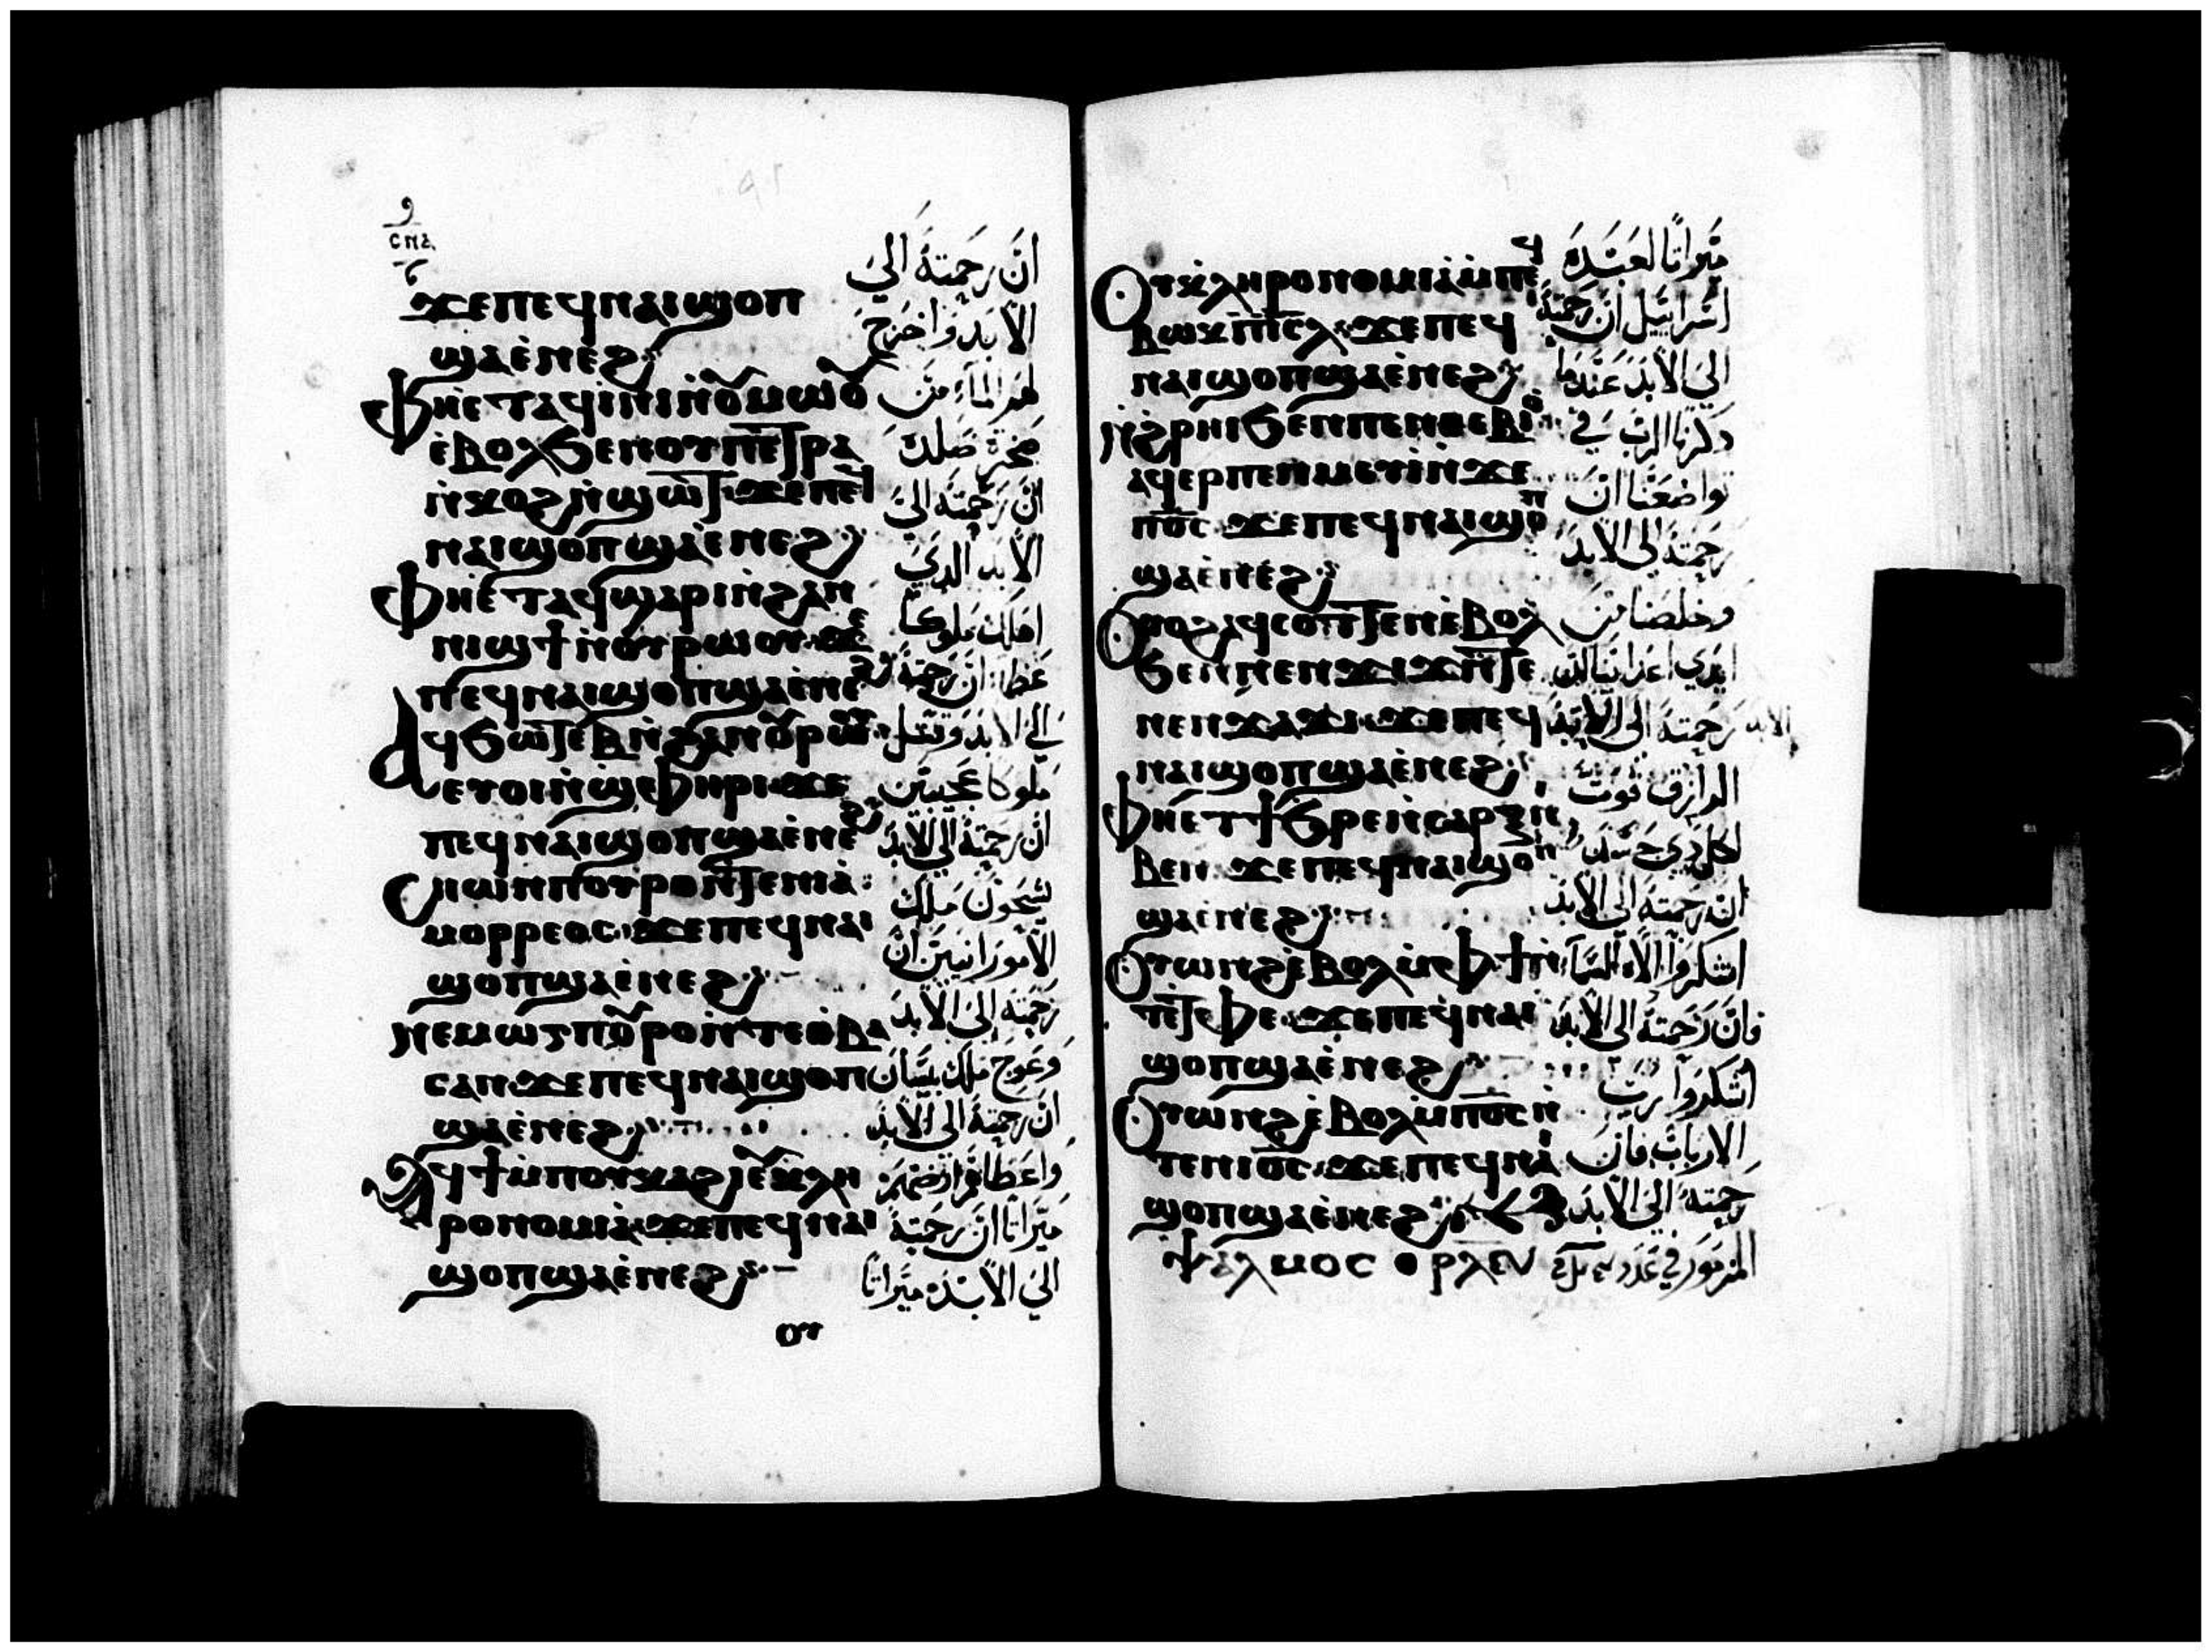 ϫⲉ ⲡⲉϥⲛⲁⲓ ϣⲟⲡ
ϣⲁ ⲉ̀ⲛⲉϩ
ⲫⲏⲉⲧⲁϥⲓⲛⲓ ⲛ̀ⲟⲩⲙⲱⲟⲩ
ⲉ̀ⲃⲟⲗ ϧⲉⲛ ⲟⲩⲡⲉⲧⲣⲁ
ⲛ̀ⲕⲟϩ ⲛ̀ϣⲱⲧ ϫⲉ ⲡⲉϥ
ⲛⲁⲓ ϣⲟⲡ ϣⲁ ⲉ̀ⲛⲉϩ
ⲫⲏⲉ̀ⲧⲁϥϣⲁⲣⲓ ⲛ̀ϩⲁⲛ
ⲛⲓϣϯ ⲛ̀ⲟⲩⲣⲱⲟⲩ ϫⲉ
ⲡⲉϥⲛⲁⲓ ϣⲟⲡ ϣⲁ ⲉ̀ⲛⲉϩ
ⲁϥϧⲱⲧⲉⲃ ⲛ̀ϩⲁⲛⲟⲩⲣⲱⲟⲩ
ⲉⲧⲟⲓ ⲛ̀ϣⲫⲏⲣⲓ ϫⲉ
ⲡⲉϥⲛⲁⲓ ϣⲟⲡ ϣⲁ ⲉ̀ⲛⲉϩ
ⲥⲏⲱⲛ ⲡⲟⲩⲣⲟ ⲛ̀ⲧⲉ ⲛⲓⲁ̀
ⲙⲟⲣⲣⲉⲟⲥ ϫⲉ ⲡⲉϥⲛⲁⲓ
ϣⲟⲡ ϣⲁ ⲉ̀ⲛⲉϩ
ⲛⲉⲙ ⲱⲅ ⲡⲟⲩⲣⲟ ⲛ̀ⲧⲉ ⲑⲃⲁ
ⲥⲁⲛ ϫⲉ ⲡⲉϥⲛⲁⲓ ϣⲟⲡ
ϣⲁ ⲉ̀ⲛⲉϩ
ⲁϥϯ ⲙ̀ⲡⲟⲩⲕⲁϩⲓ ⲉⲩⲕⲗⲏ
ⲣⲟⲛⲟⲙⲓⲁ ϫⲉ ⲡⲉϥⲛⲁⲓ
ϣⲟⲡ ϣⲁ ⲉ̀ⲛⲉϩ
ⲟⲩ
انّ رحمته الي
الابد واخرج
لهم الماء من
صخرة صلده
انّ رحمته الي
الابد الدي
اهلك ملوكا
عظا انّ رحمته
الي الابد وقتل
ملوكا عجيبين
انّ رحمته الي الابد
سيحون ملك
الامورانيين انّ
رحمته الي الابد
وعوج ملك بيسان
انّ رحمته الي الابد
واعطا ارضهم
ميراثا انّ رحمته
الي الابد ميراثا
ⲟⲩⲕⲗⲏⲣⲟⲛⲟⲙⲓⲁ ⲙ̀ⲡⲉϥ
ⲃⲱⲕ ⲡⲓⲥⲗ ϫⲉ ⲡⲉϥ
ⲛⲁⲓ ϣⲟⲡ ϣⲁ ⲉ̀ⲛⲉϩ
ⲛ̀ϩⲣⲏⲓ ϧⲉⲛ ⲡⲉⲛⲑⲉⲃⲓⲟ
ⲁϥⲉⲣⲡⲉⲛⲙⲉⲩⲓ ⲛ̀ϫⲉ
ⲡⲟ̅ⲥ̅ ϫⲉ ⲡⲉϥⲛⲁⲓ ϣⲟⲡ
ϣⲁ ⲉ̀ⲛⲉϩ
ⲟⲩⲟϩ ⲁϥⲥⲟⲧⲧⲉⲛ ⲉ̀ⲃⲟⲗ
ϧⲉⲛ ⲛⲉⲛϫⲓϫ ⲛ̀ⲧⲉ
ⲛⲉⲛϫⲁϫⲓ ϫⲉ ⲡⲉϥ
ⲛⲁⲓ ϣⲟⲡ ϣⲁ ⲉ̀ⲛⲉϩ
ⲫⲏⲉⲧϯϧⲣⲉ ⲛ̀ⲥⲁⲣⲝ ⲛⲓ
ⲃⲉⲛ ϫⲉ ⲡⲉϥⲛⲁⲓ ϣⲟⲡ
ϣⲁ ⲉ̀ⲛⲉϩ
ⲟⲩⲱⲛϩ ⲉ̀ⲃⲟⲗ ⲙ̀ⲫϯ ⲛ̀
ⲧⲉ ⲧⲫⲉ ϫⲉ ⲡⲉϥⲛⲁⲓ
ϣⲟⲡ ϣⲁ ⲉ̀ⲛⲉϩ
ⲟⲩⲱⲛϩ ⲉ̀ⲃⲟⲗ ⲙ̀ⲡⲟ̅ⲥ̅ ⲛ̀
ⲧⲉ ⲛⲓⲟ̅ⲥ̅ ϫⲉ ⲡⲉϥⲛⲁⲓ
ϣⲟⲡ ϣⲁ ⲉ̀ⲛⲉϩ
ⲯⲁⲗⲙⲟⲥ
ميراثا لعبده
اسراييل انّ رحمته
الي الابد عندما
دكرنا الرب في
تواضعنا انّ
رحمته الي الابد
وخلصنا من
ايدي اعداينا انّ
رحمته الي الابد
الرازق قوت
لكل دي جسد
انّ رحمته الي الابد
اشكروا الاه السما
فانّ رحمته الي الابد
اشكروا رب
الارباب فان
رحمته الي الابد
المزمور في عدد